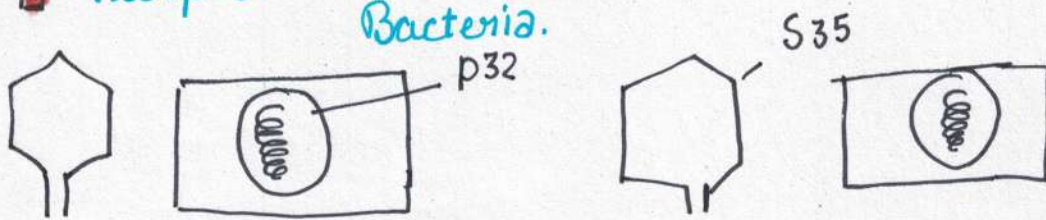 Bacteria.
P32
S35